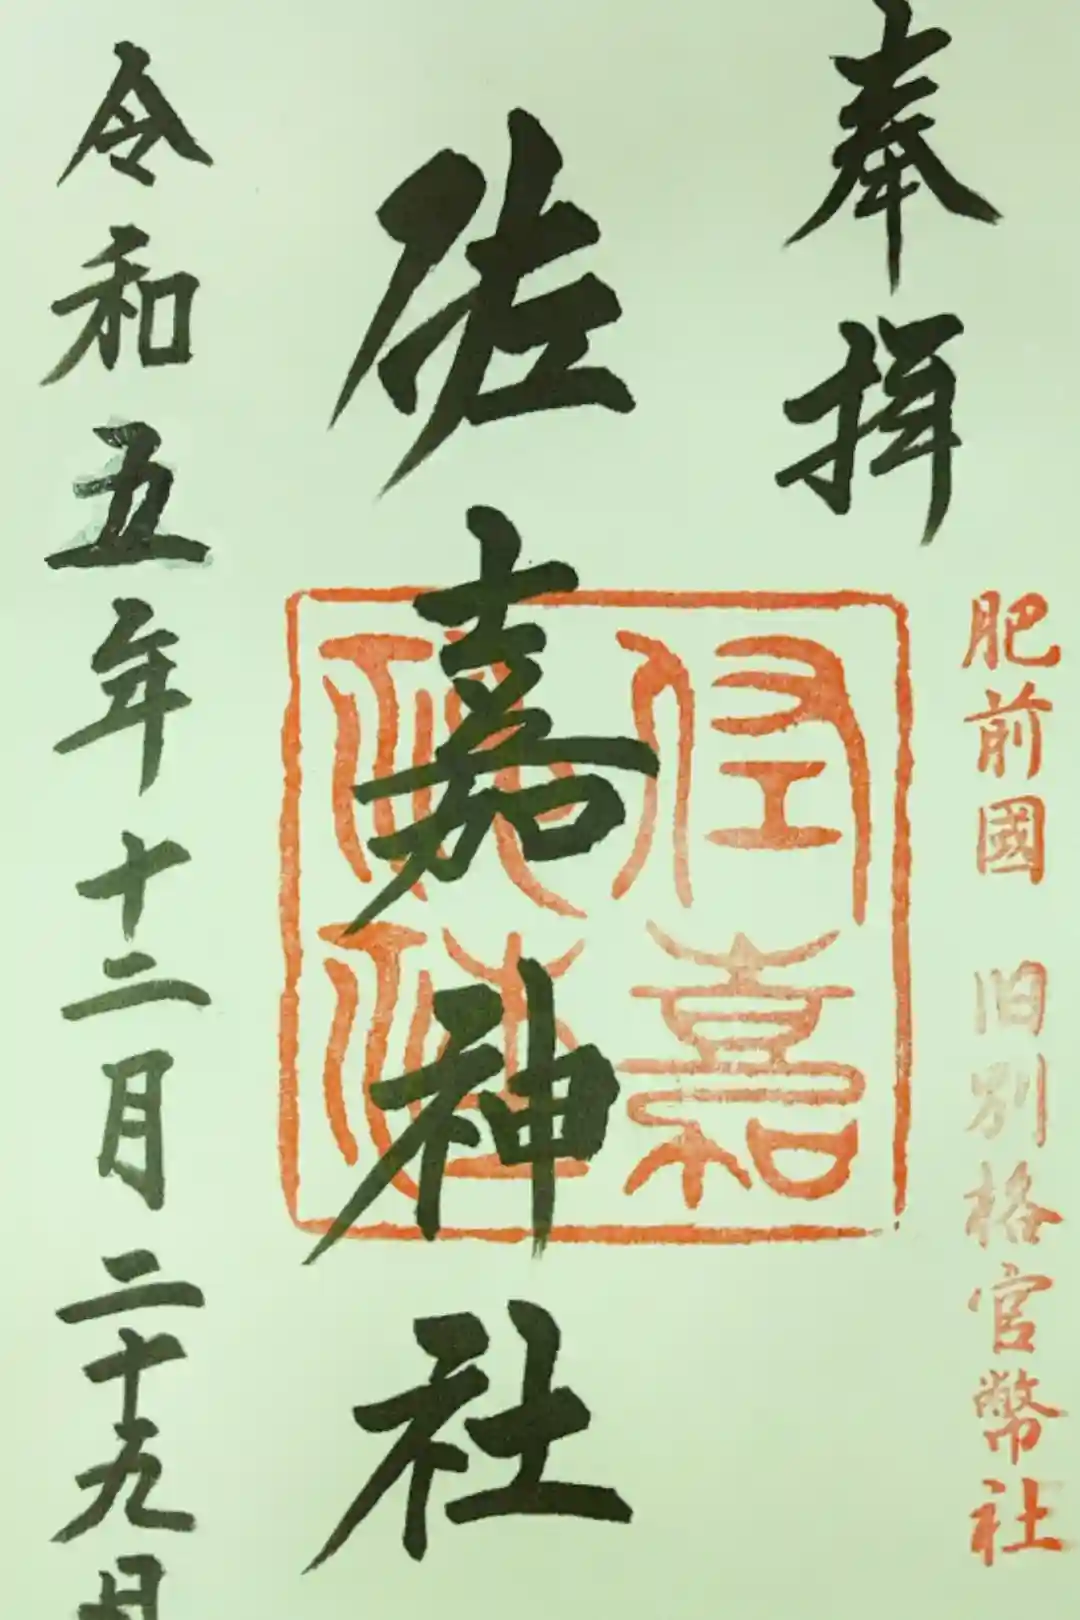 奉拝
肥前國 旧別格官幣社
佐嘉神社
佐嘉神社
令和五年十二月二十九日